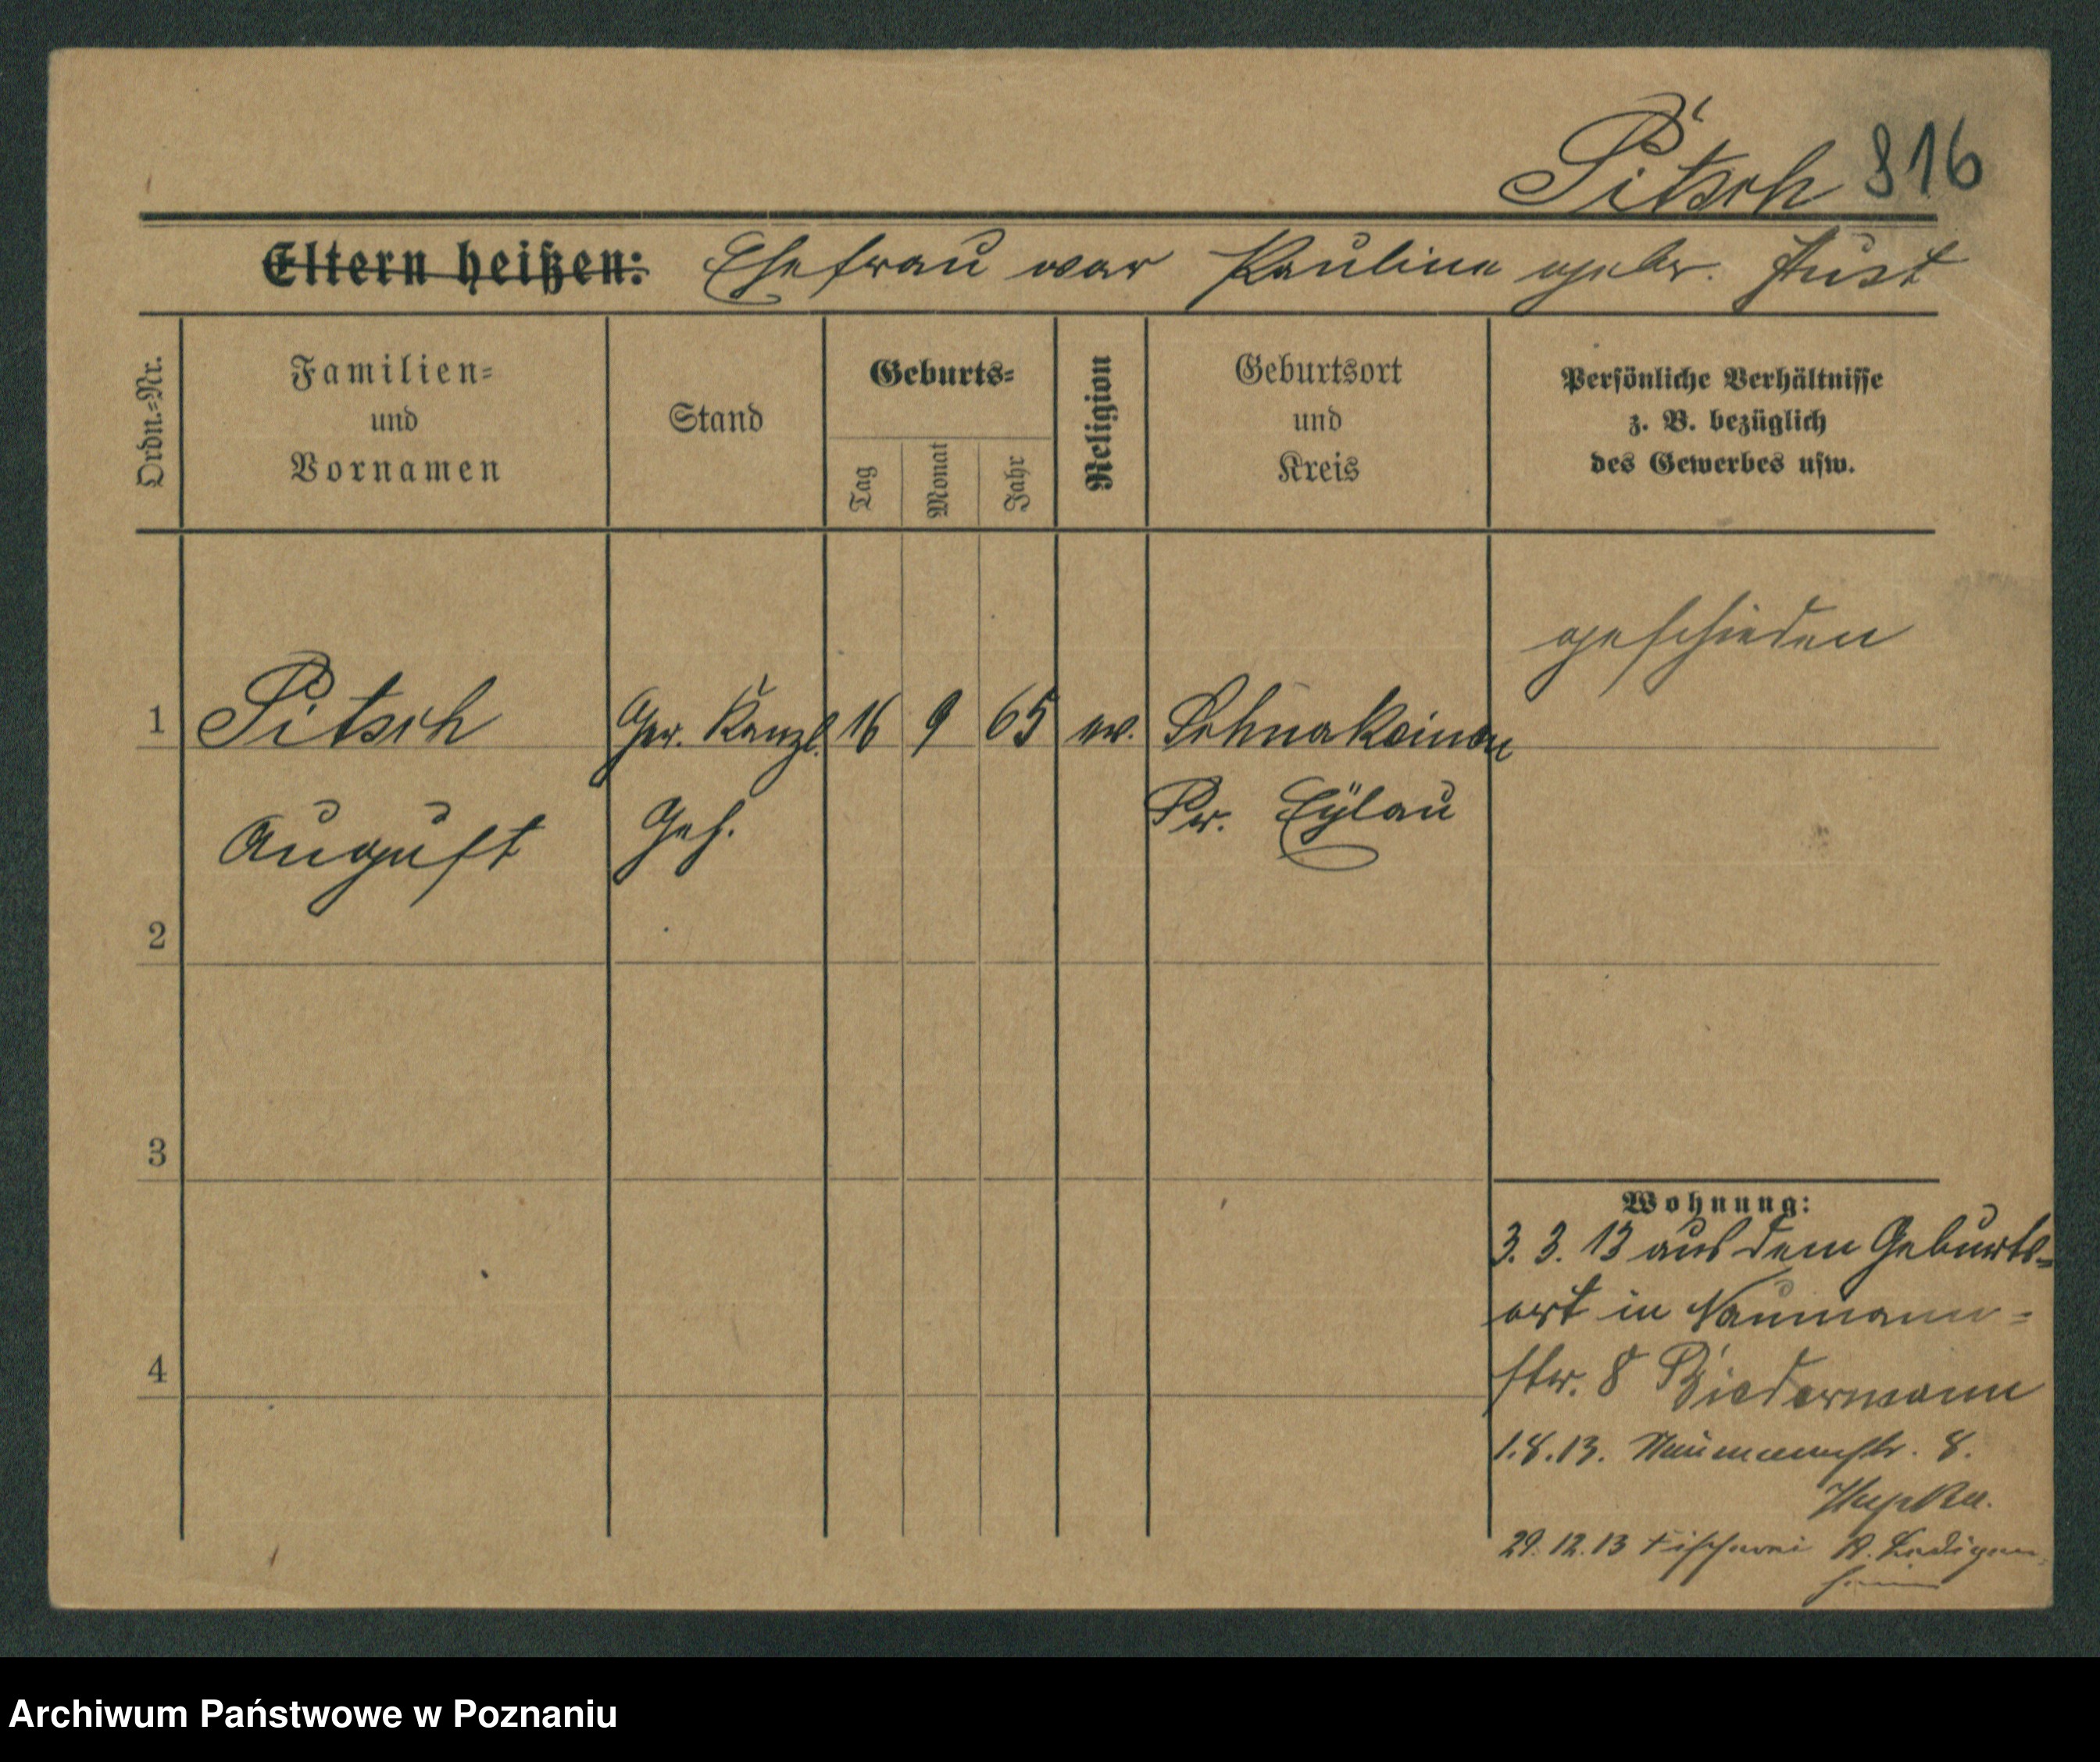 Pitsch 816
Eltern heißen: Ehefrau war Pauline gebr. Just
Ordn.=Nr.
Familien=
und
Vornamen
Stand
Geburts=
Tag
Monat
Jahr
Religion
Geburtsort
und
Kreis
Persönliche Verhältnisse
z. B. bezüglich
des Gewerbes usw.
geschieden
1 Pitsch Ger. Kanzl. 16 9 65 ev. Schnakeinen
August Geh. Pr. Eylau
2
3
4
Wohnung:
3. 3. 13 aus dem Geburts=
ort in Naumann=
str. 8 Biedermann
1.8.13. Naumannstr. 8.
Hupka.
29.12.13 Fischerei Ledigen=
heim
Archiwum Państwowe w Poznaniu